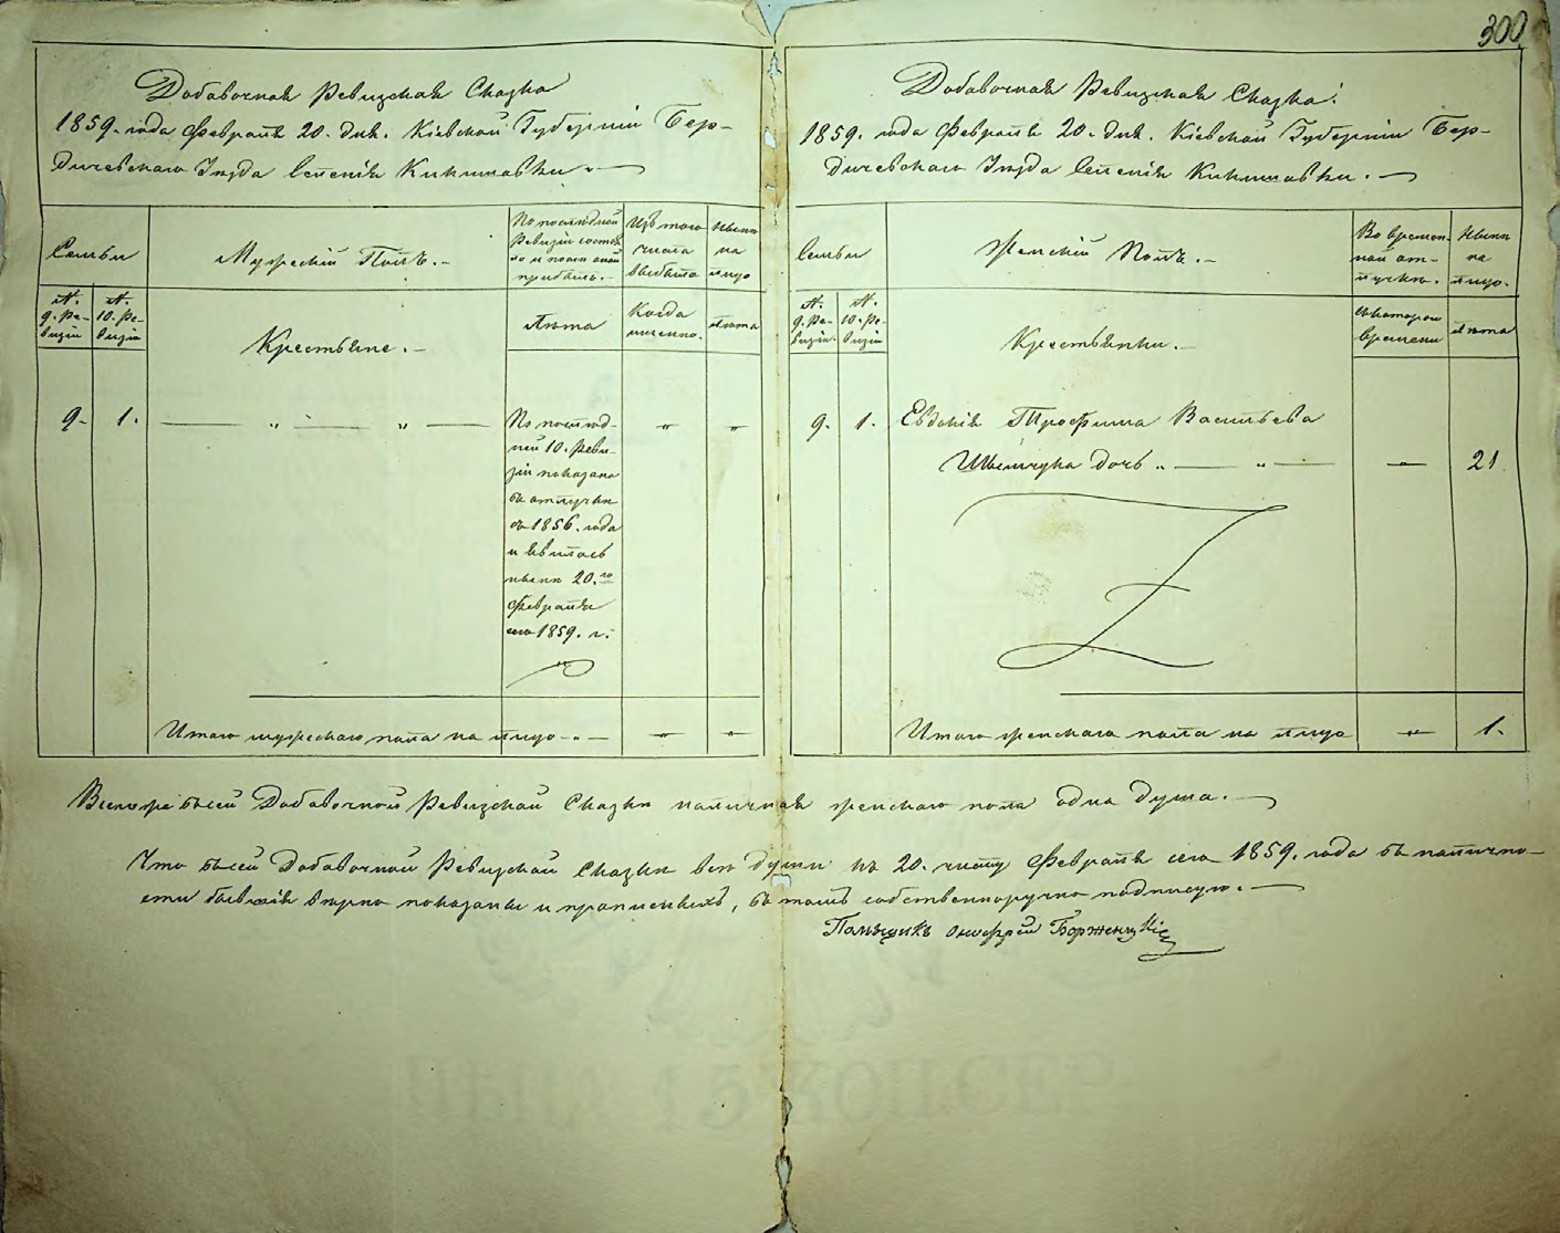 300
Добавочная Ревизская Сказка
1859. года Февраля 20. дня. Кіевской Губерніи Бер-
дичевскаго Уезда Селенія Кикишовки.
Семьи
Мужескій Полъ.
По последней
Ревизіи состоя-
ло и после оной
прибыло.
Изъ того
числа
выбыло
Ныне
на
лицо
№.
9. Ре-
визіи
№.
10. Ре-
визіи
Крестьяне.
Лета
Когда
именно.
Лета
9. 1. „ „ „ „
По послед-
ней 10. Реви-
зіи показана
въ отлучке
съ 1856. года
и явилась
ныне 20.го
Февраля
сего 1859. г.
Итого мужескаго пола на лицо „ „ „
Добавочная Ревизская Сказка.
1859. года Февраля 20. дня. Кіевской Губерніи Бер-
дичевскаго Уезда Селенія Кикишовки.
Семьи
Женскій Полъ.
Во времен-
ной от-
лучке.
Ныне
на
лицо.
№.
9. Ре-
визіи.
№.
10. Ре-
визіи
Крестьянки.
съ котораго
времени
Лета
9. 1. Евдокія Трофима Васильева
дочь „ „ „ 21
Итого женскаго пола на лицо „ 1.
Вытоже сей Добавочной Ревизской Сказки наличная женскаго пола одна душа.
Что въ сей Добавочной Ревизской Сказке все души къ 20. числу Февраля сего 1859. года въ налично-
сти бывшія верно показаны и прописныхъ, въ томъ собственноручно подписую.
Помещикъ Онофрей Борженцкій